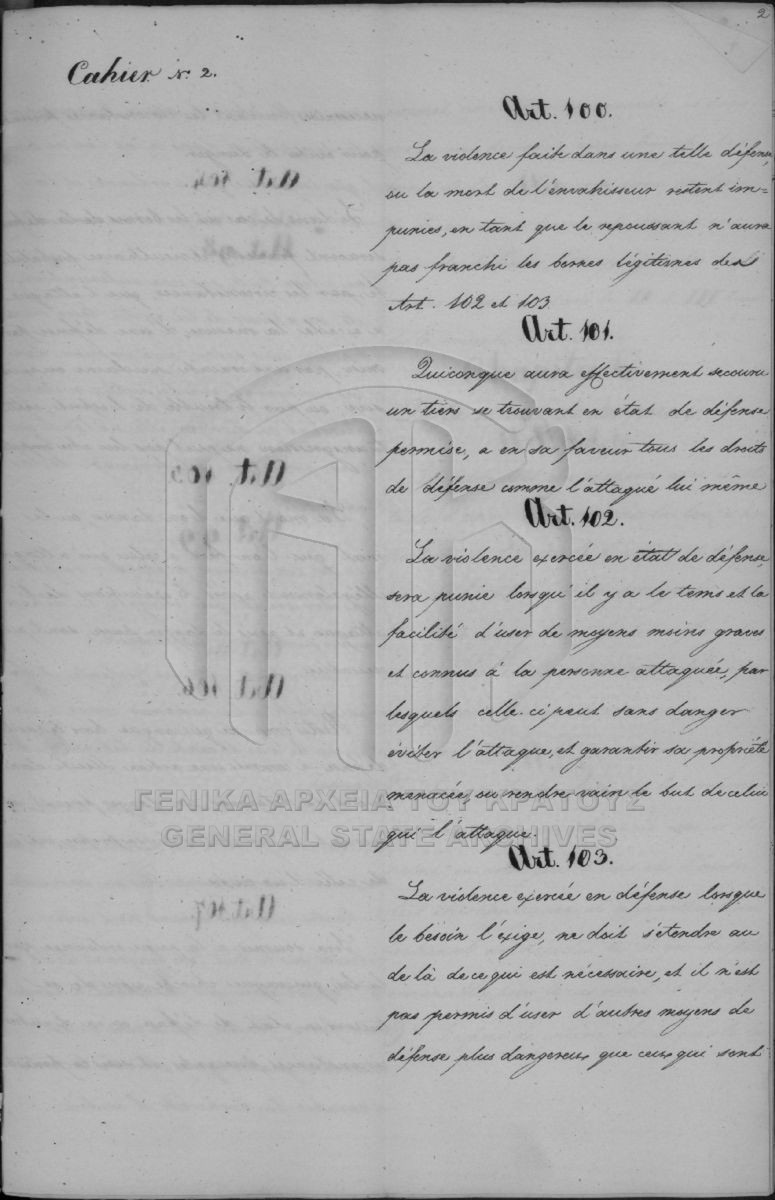 2
Cahier N.º 2.
Art. 100.
La violence faite dans une telle défense,
ou la mort de l'envahisseur restent im=
punies, en tant que le repoussant n'aura
pas franchi les bornes légitimes des
Art. 102 et 103
Art. 101.
Quiconque aura effectivement secouru
un tiers se trouvant en état de défense
permise, a en sa faveur tous les droits
de défense comme l'attaqué lui même
Art. 102.
La violence exercée en état de défense,
sera punie lorsqu'il y a le tems et la
facilité d'user de moyens moins graves
et connus à la personne attaquée, par
lesquels celle-ci peut sans danger
éviter l'attaque, et garantir sa propriété
menacée, ou rendre vain le but de celui
qui l'attaque.
ΓΕΝΙΚΑ ΑΡΧΕΙΑ ΤΟΥ ΚΡΑΤΟΥΣ
GENERAL STATE ARCHIVES
Art. 103.
La violence exercée en défense lorsque
le besoin l'éxige, ne doit s'étendre au
de là de ce qui est nécessaire, et il n'est
pas permis d'user d'autres moyens de
défense plus dangereux que ceux qui sont